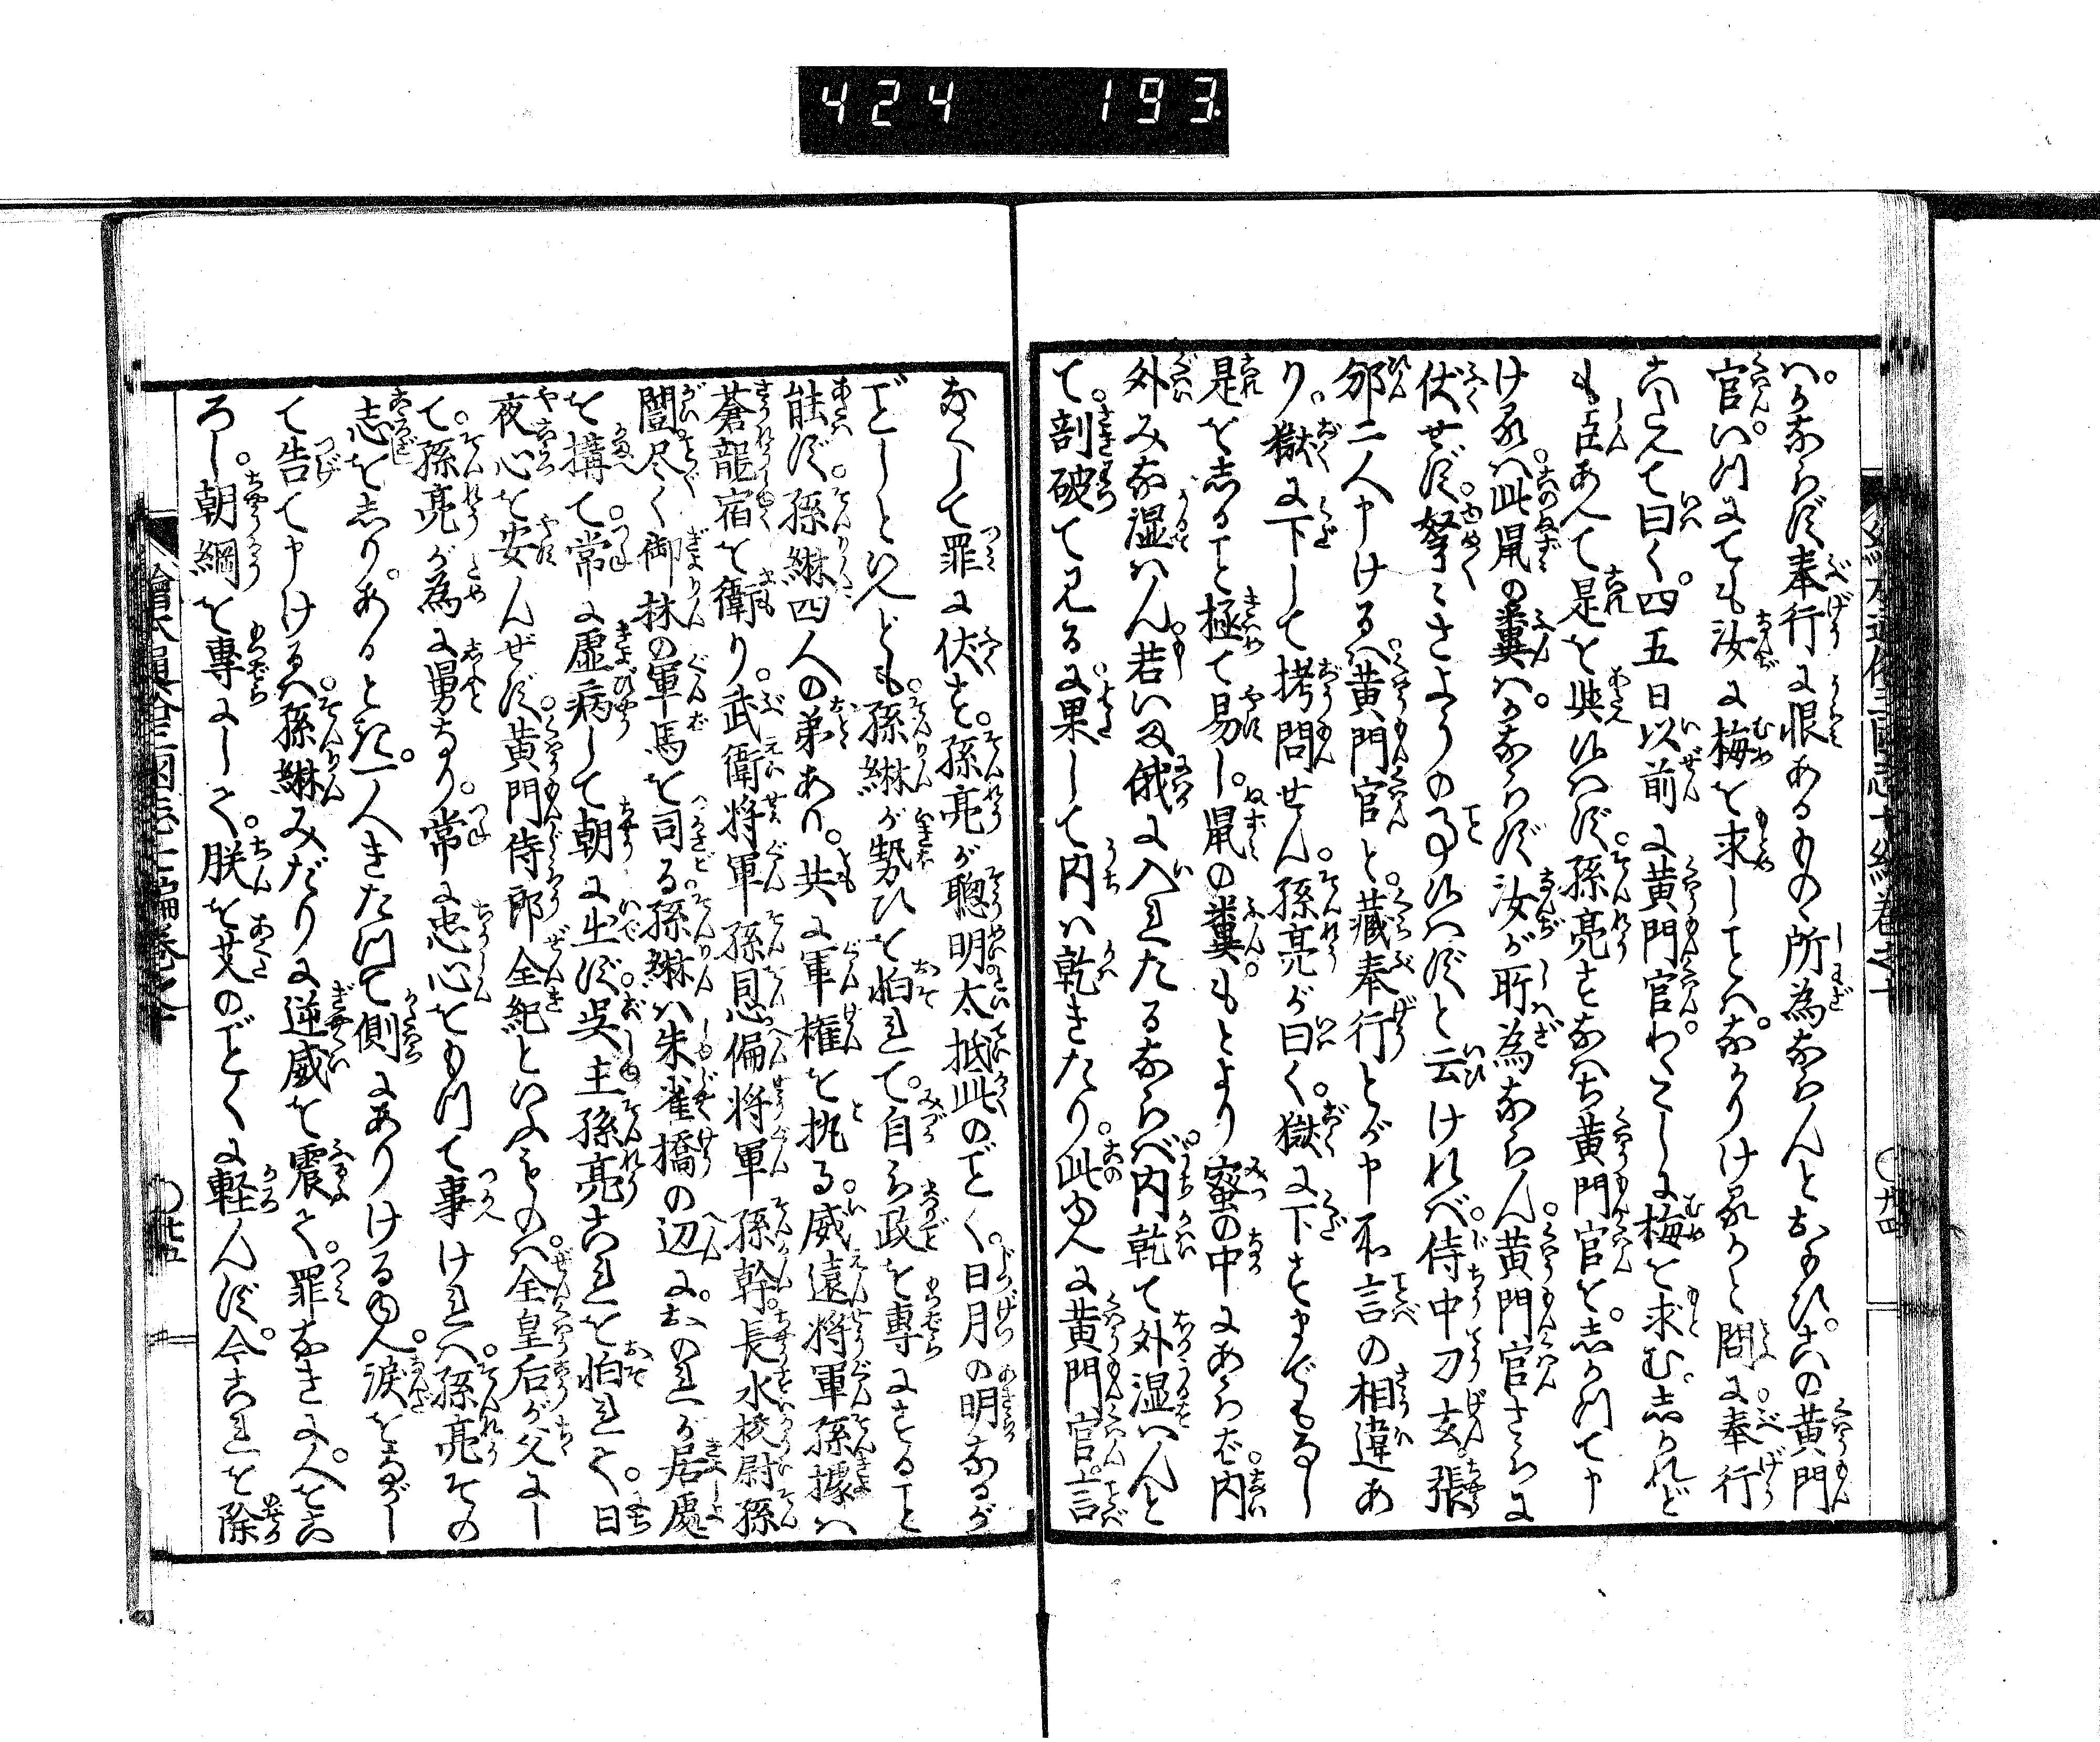 424 193
ハかならず奉行に恨あるものゝ所為ならんとおもひ。この黄門
官ハ。いつにても汝に梅を求しことハ。なかりけるかと問に。奉行
こたへて曰く。四五日以前に黄門官。わたくしに梅を求む。しかれど
も臣あへて是を與候ハず。孫亮すなハち黄門官を。しかつて申
けるハ。此鼠の糞ハ。かならず汝が所為ならん。黄門官さらに
伏せず。努々さようの事候ハずと云けれバ。侍中刀玄。張
邠二人申けるハ。黄門官と。藏奉行とが申不言の相違あ
り。獄に下して拷問せん。孫亮が曰く。獄に下すまでもなし
是をしること極て易し。鼠の糞。もとより蜜の中にあらバ。内
外みな湿ハん。若いま俄に入れたるならバ。内乾て外湿ハんと
て。剖破て見るに。果して内ハ乾きたり。此ゆへに黄門官。言
なくして罪に伏す。孫亮が聰明。太抵此のごとく。日月の明なるが
ごとしといへども。孫綝が勢ひを怕れて。自ら政を專にすること
能ず。孫綝四人の弟あり。共に軍権を執る。威遠将軍孫據ハ
蒼龍宿を衛り。武衛将軍孫恩偏将軍孫幹。長水校尉孫
闓尽く御林の軍馬を司る。孫綝ハ朱雀橋の辺に。おのれが居處
を搆て。常に虚病して朝に出ず。呉主孫亮これを怕れて。日
夜心を安んぜず。黄門侍郎全紀といふものハ。全皇后が父にし
て。孫亮が為に舅なり。常に忠心をもつて事けれハ。孫亮その
志をしり。あると記。一人きたつて側にありけるゆへ。涙をながし
て告て申けるハ。孫綝みだりに逆威を震て。罪なきに。人をこ
ろし。朝綱を專にして。朕を芟のごとくに軽んず。今これを除